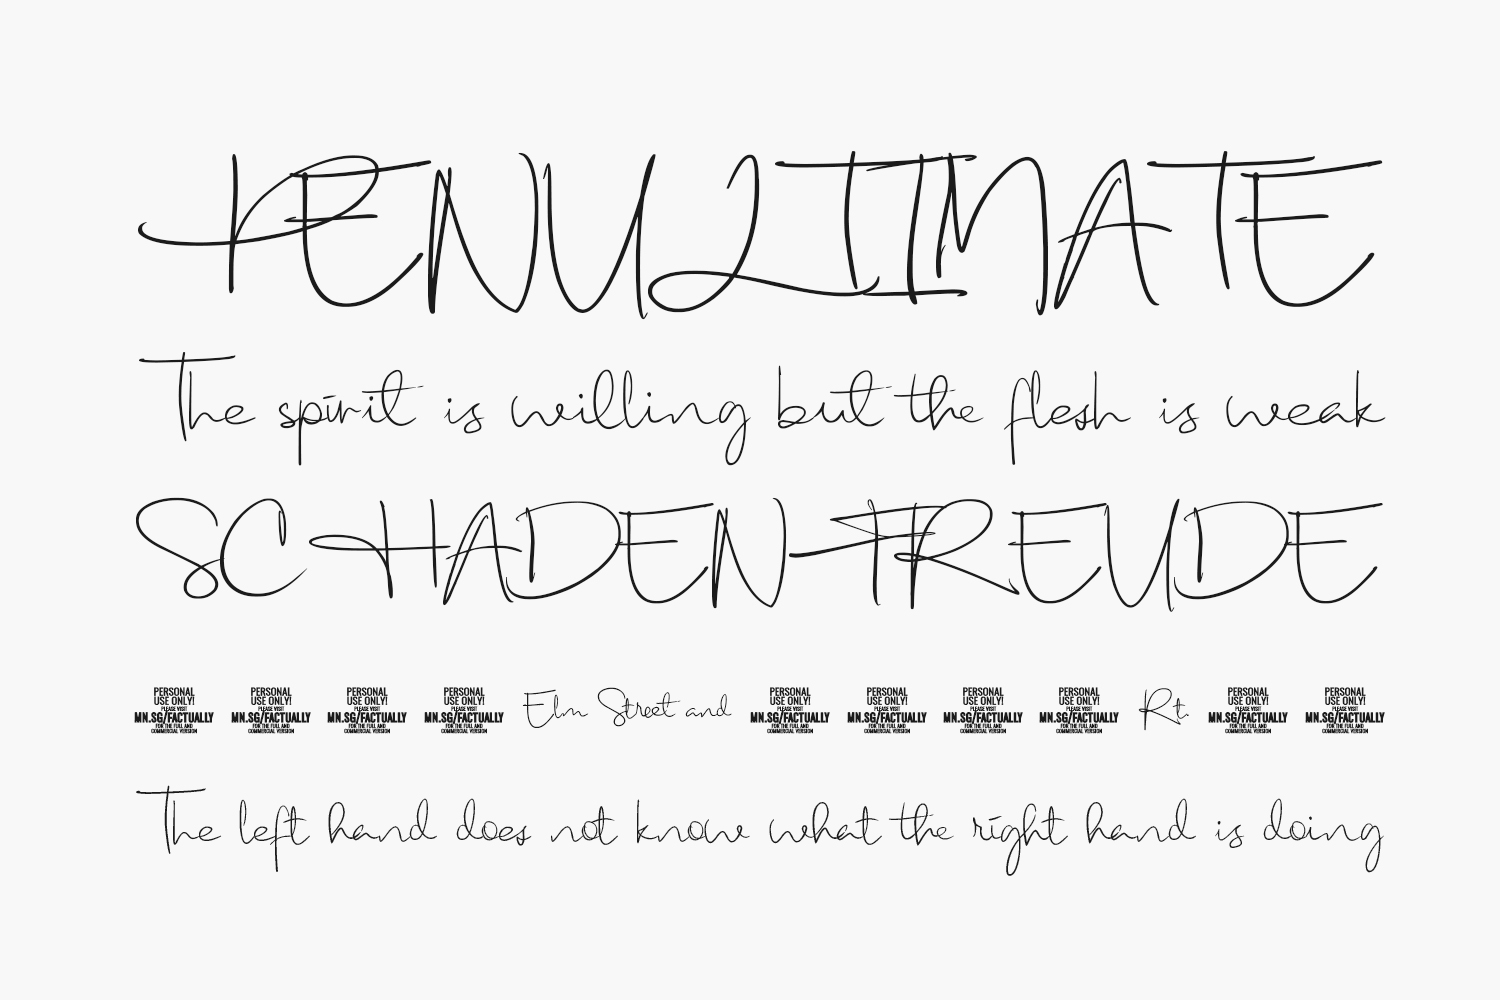 PENULTIMATE
The spirit is willing but the flesh is weak
SCHADENFREUDE
PERSONAL USE ONLY! PLEASE VISIT MN.SG/FACTUALLY FOR THE FULL AND COMMERCIAL VERSION PERSONAL USE ONLY! PLEASE VISIT MN.SG/FACTUALLY FOR THE FULL AND COMMERCIAL VERSION PERSONAL USE ONLY! PLEASE VISIT MN.SG/FACTUALLY FOR THE FULL AND COMMERCIAL VERSION PERSONAL USE ONLY! PLEASE VISIT MN.SG/FACTUALLY FOR THE FULL AND COMMERCIAL VERSION Elm Street and PERSONAL USE ONLY! PLEASE VISIT MN.SG/FACTUALLY FOR THE FULL AND COMMERCIAL VERSION PERSONAL USE ONLY! PLEASE VISIT MN.SG/FACTUALLY FOR THE FULL AND COMMERCIAL VERSION PERSONAL USE ONLY! PLEASE VISIT MN.SG/FACTUALLY FOR THE FULL AND COMMERCIAL VERSION PERSONAL USE ONLY! PLEASE VISIT MN.SG/FACTUALLY FOR THE FULL AND COMMERCIAL VERSION Rt. PERSONAL USE ONLY! PLEASE VISIT MN.SG/FACTUALLY FOR THE FULL AND COMMERCIAL VERSION PERSONAL USE ONLY! PLEASE VISIT MN.SG/FACTUALLY FOR THE FULL AND COMMERCIAL VERSION
The left hand does not know what the right hand is doing